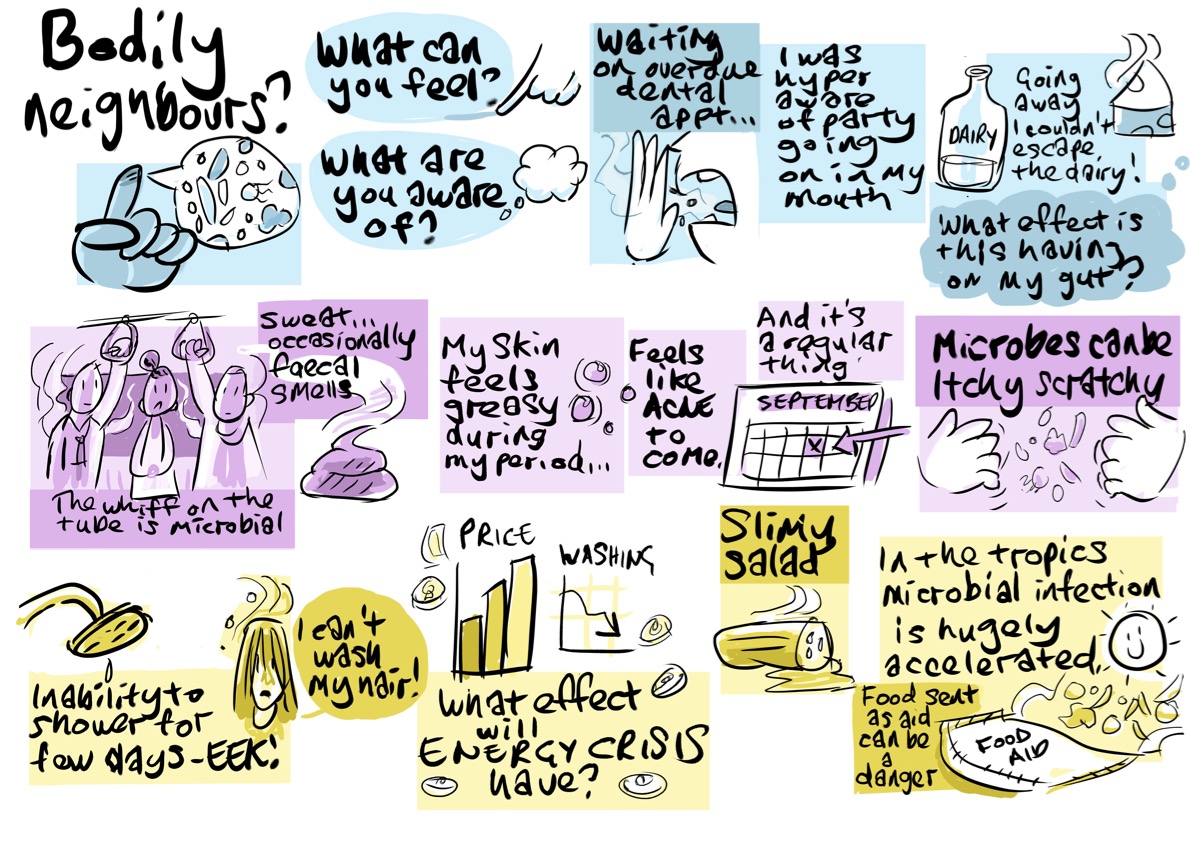 Bodily
neighbours?
What can
you feel?
What are
you aware
of?
Waiting
on overdue
dental
appt...
I was
hyper
aware
of party
going
on in my
mouth
DAIRY
Going
away
I couldn't
escape
the dairy!
What effect is
this having
on my gut?
The whiff on the
tube is microbial
Sweat...
occasionally
faecal
smells
My skin
feels
greasy
during
my period...
Feels
like
ACNE
to
come.
And it's
a regular
thing
SEPTEMBER
X
Microbes can be
Itchy scratchy
Inability to
shower for
few days - EEK!
I can't
wash
my hair!
PRICE
WASHING
What effect
will
ENERGY CRISIS
have?
Slimy
salad
In the tropics
microbial infection
is hugely
accelerated.
Food sent
as aid
can be
a
danger
FOOD
AID